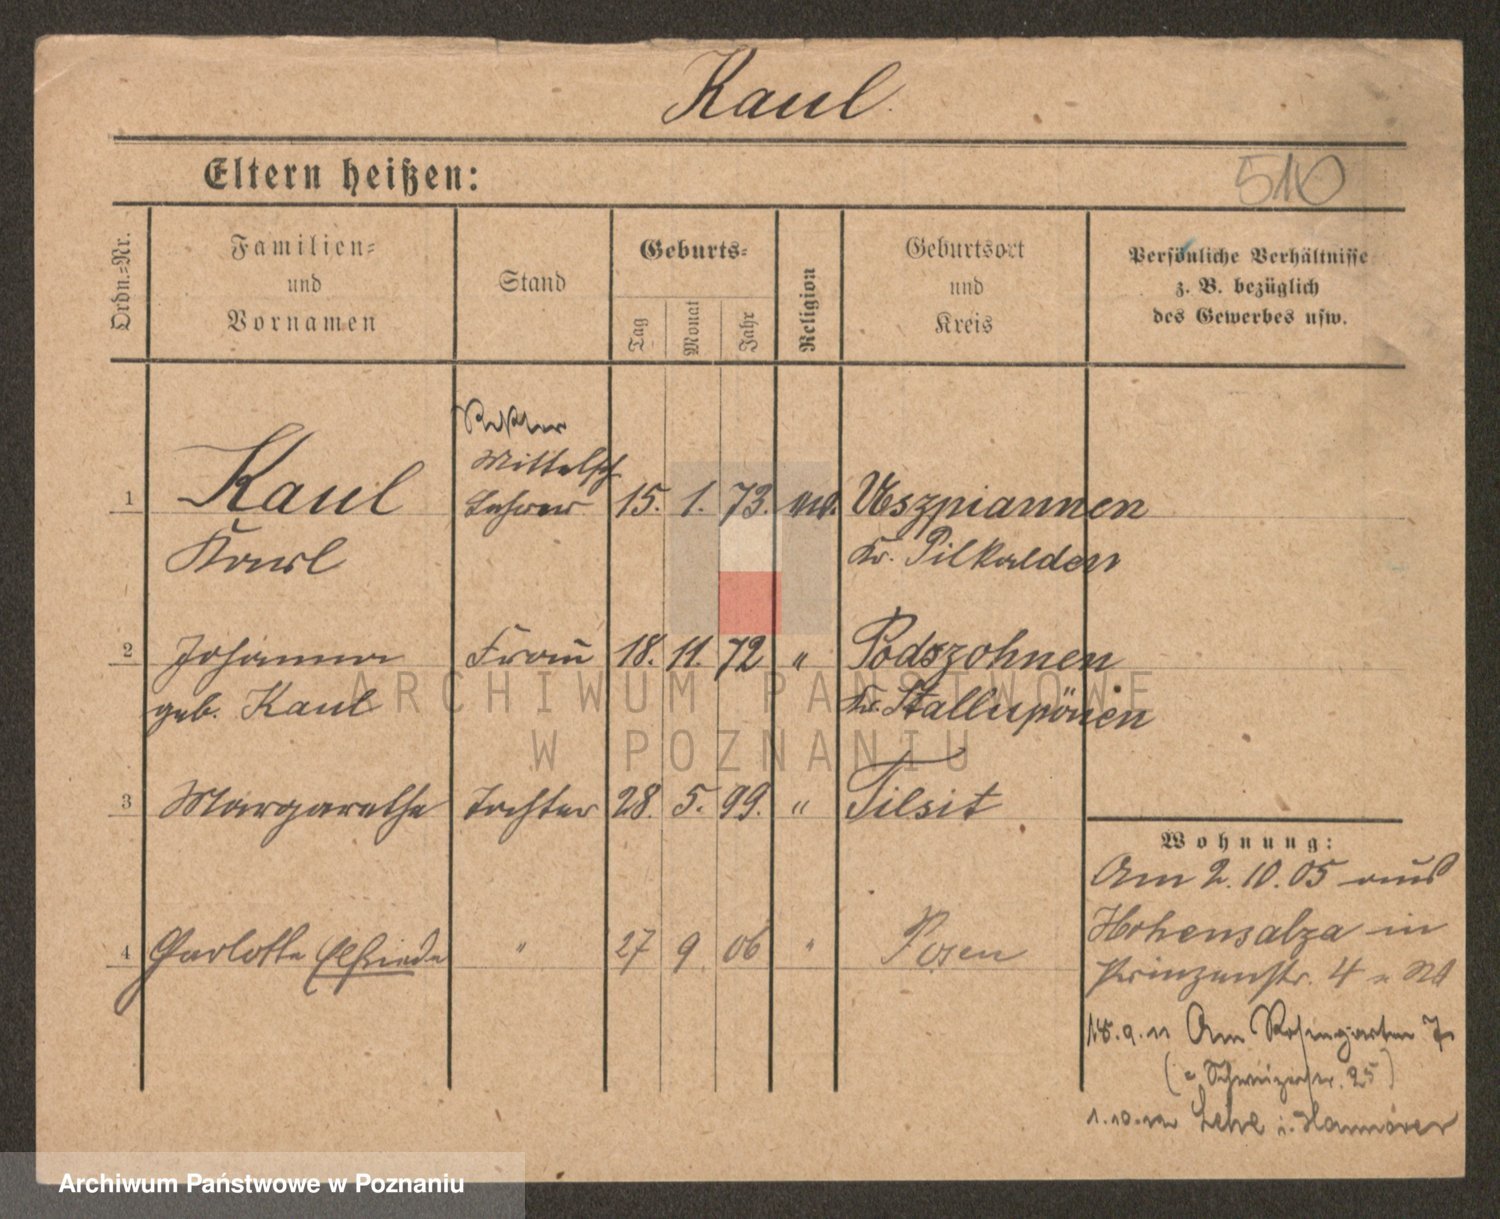 Kaul
Eltern heißen:
510
Ordn.-Nr.
Familien-
und
Vornamen
Stand
Geburts-
Tag
Monat
Jahr
Religion
Geburtsort
und
Kreis
Persönliche Verhältnisse
z. B. bezüglich
des Gewerbes usw.
Rektor
Mittelsch
1 Kaul Lehrer 15. 1. 73. ev. Uszpiannen
Karl Kr. Pilkalden
2 Johanna Frau 18. 11. 72 " Podszohnen
geb. Kaul Kr. Stallupönen
3 Margarethe Tochter 28. 5. 99. " Tilsit
4 Charlotte Elfriede " 27 9. 06 " Posen
Wohnung:
Am 2. 10. 05 aus
Hohensalza in
Prinzenstr. 4
18. 9. 11 Am Rosengarten 7
(= Schweizerstr. 25)
1. 10. 12 Lehe i. Hannover
ARCHIWUM PAŃSTWOWE
W POZNANIU
Archiwum Państwowe w Poznaniu